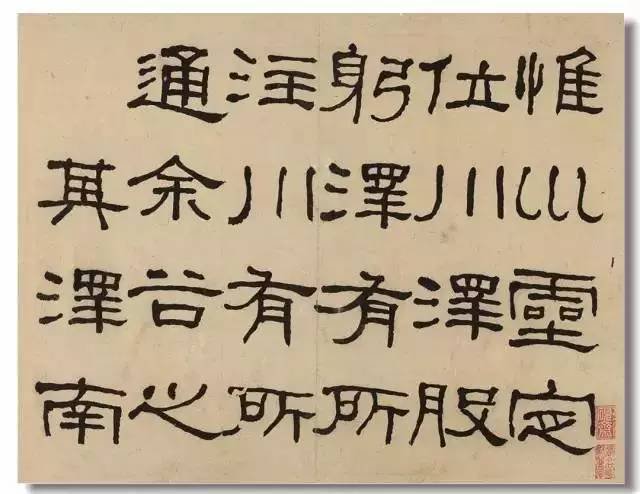 惟巛靈定
位川澤股
躬澤有所
注川有所
通余谷之
其澤南